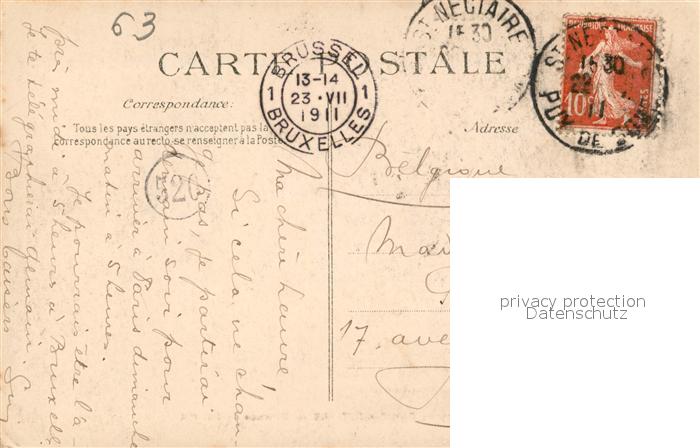 63
CARTE POSTALE
ST NECTAIRE
15 30
BRUSSEL
1 13-14 1
23 · VII
1911
BRUXELLES
ST NE
15 30
22
11
PUY DE
10
Correspondance:
Tous les pays étrangers n'acceptent pas la
correspondance au recto. se renseigner à la Poste
Adresse
Belgique
17, ave
Ma chère Laure,
Si cela ne chan-
ge pas, je partirai
demain soir pour
arriver à Paris dimanche
matin à 5 heures.
Je pourrais être l'a-
près midi à 5 heures à Bruxelles
je te télégraphierai demain.
Bons baisers
Guy
privacy protection
Datenschutz